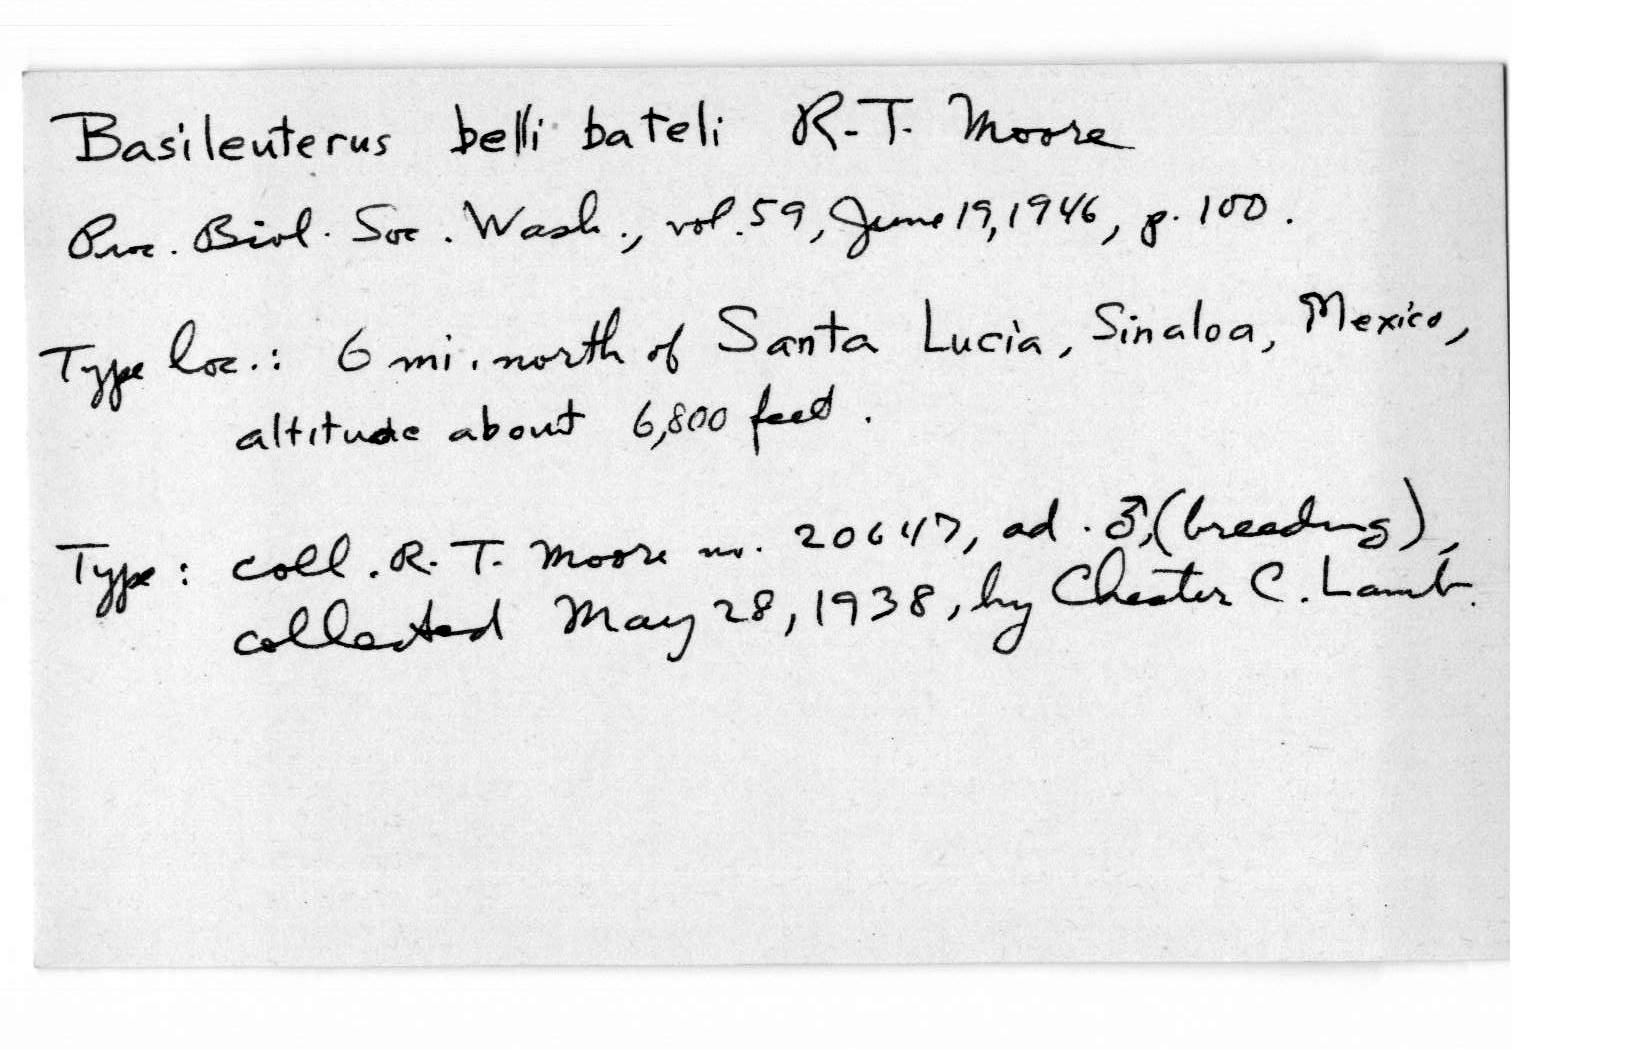 Basileuterus belli bateli R.T. Moore
Proc. Biol. Soc. Wash., vol. 59, June 19, 1946, p. 100.
Type loc.: 6 mi. north of Santa Lucia, Sinaloa, Mexico,
altitude about 6,800 feet.
Type: coll. R. T. Moore no. 20647, ad. ♂, (breeding),
collected May 28, 1938, by Chester C. Lamb.